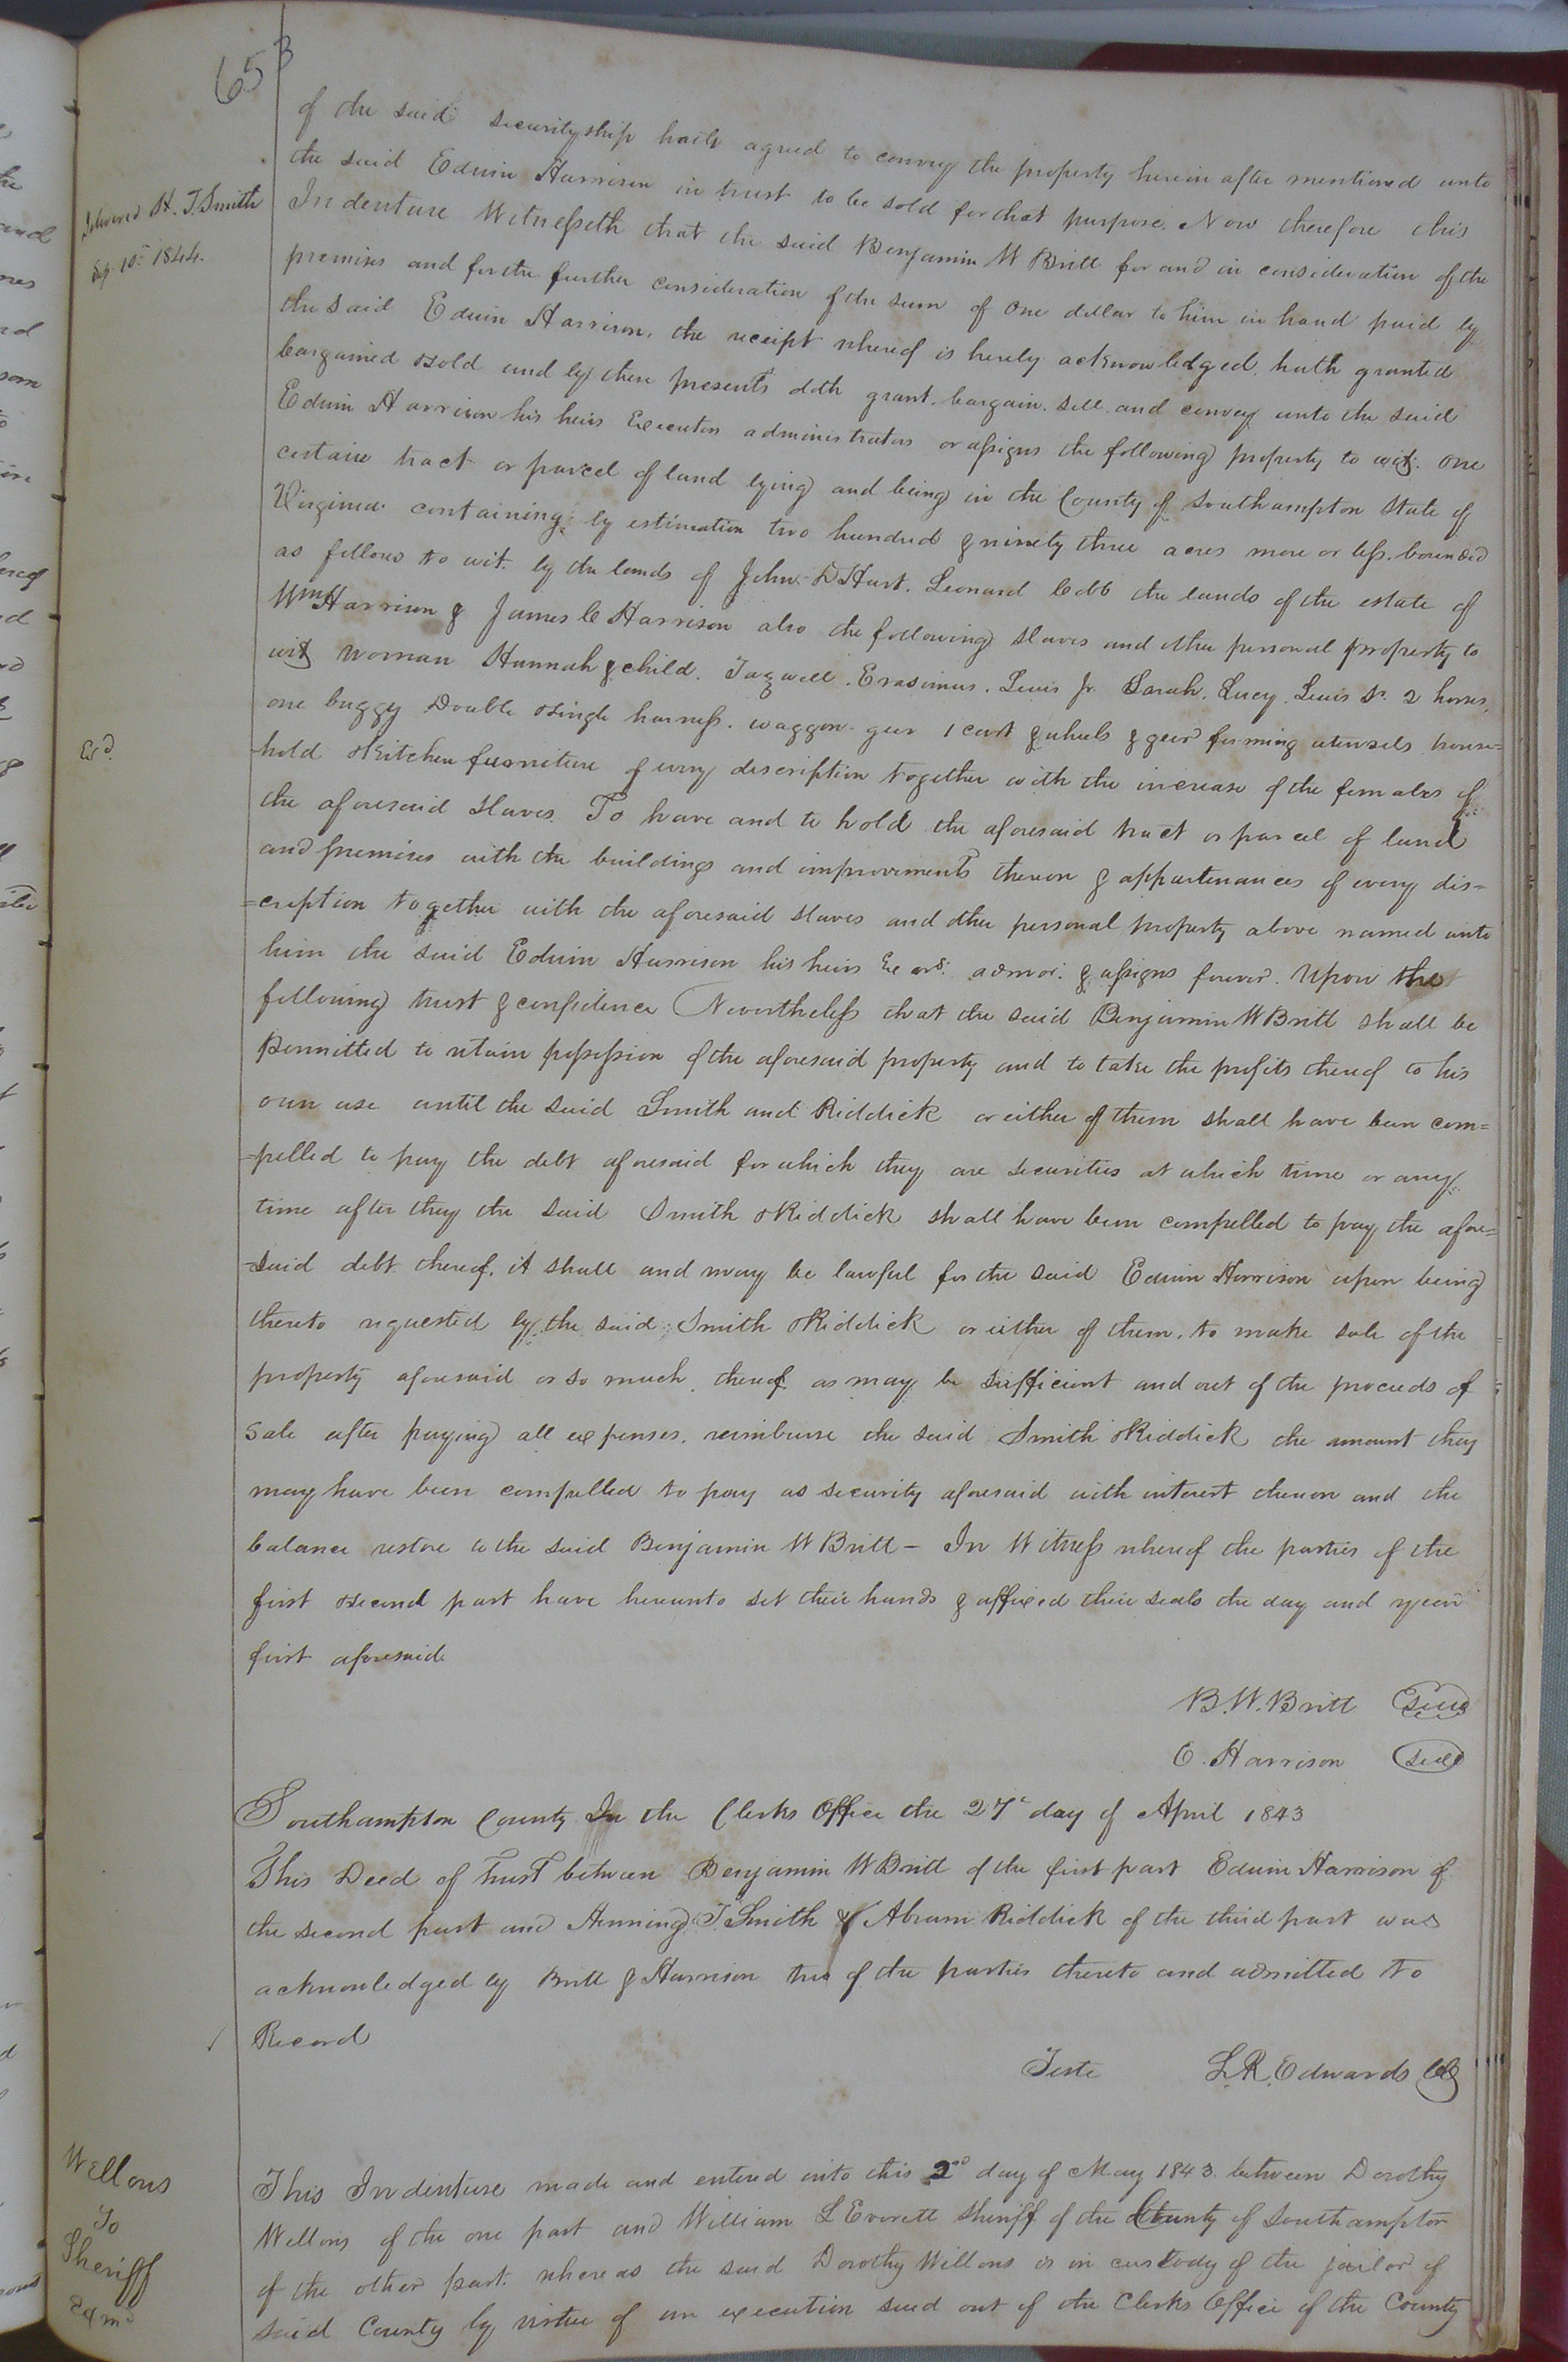 65
of the said securityship hath agreed to convey the property herein after mentioned unto
the said Edwin Harrison in trust to be sold for that purpose. Now therefore this
Delivered H. T. Smith
Sep. 10th 1844.
Indenture Witnesseth that the said Benjamin W Britt for and in consideration of the
premises and for the further consideration of the sum of one dollar to him in hand paid by
the said Edwin Harrison, the receipt whereof is hereby acknowledged, hath granted
bargained & sold and by these presents doth grant, bargain, sell and convey unto the said
Edwin Harrison his heirs Executors administrators or assigns the following property to wit. one
certain tract or parcel of land lying and being in the County of Southampton State of
Virginia containing by estimation two hundred & ninety three acres more or less. bounded
as follows to wit. by the lands of John D Hart. Leonard Cobb the lands of the estate of
Wm Harrison & James C Harrison also the following slaves and other personal property to
wit Woman Hannah & child. Tazwell. Erasimus. Lewis Jr. Sarah. Lucy. Lewis Sr. 2 horses,
one buggy Double & single harness. waggon. geer 1 cart & wheels & geer farming utensils house=
Exd.
-hold & Kitchen furniture of every description together with the increase of the females of
the aforesaid slaves. To have and to hold the aforesaid tract or parcel of land
and premises with the buildings and improvements thereon & appurtenances of every dis=
=cription together with the aforesaid slaves and other personal property above named unto
him the said Edwin Harrison his heirs Exors. admor. & assigns forever. Upon the
following trust & confidence Nevertheless that the said Benjamin W Britt shall be
permitted to retain possession of the aforesaid property and to take the profits thereof to his
own use until the said Smith and Riddick or either of them shall have been com=
=pelled to pay the debt aforesaid for which they are securities at which time or any
time after they the said Smith & Riddick shall have been compelled to pay the afore=
=said debt thereof, it shall and may be lawful for the said Edwin Harrison upon being
thereto requested by the said Smith & Riddick or either of them, to make sale of the
property aforesaid or so much thereof as may be sufficient and out of the proceeds of
sale after paying all expenses, reimburse the said Smith & Riddick the amount they
may have been compelled to pay as security aforesaid with interest thereon and the
balance restore to the said Benjamin W Britt – In Witness whereof the parties of the
first & second part have hereunto set their hands & affixed their seals the day and year
first aforesaid
B. W. Britt Seal
E. Harrison Seal
Southampton County In the Clerks Office the 27th day of April 1843
This Deed of Trust between Benjamin W Britt of the first part Edwin Harrison of
the second part and Henning T. Smith & Abram Riddick of the third part was
acknowledged by Britt & Harrison two of the parties thereto and admitted to
Record
Teste L. R. Edwards Clk
Wellons
To
Sheriff
Exmd
This Indenture made and entered into this 2nd day of May 1843 between Dorothy
Wellons of the one part and William L Everett Sheriff of the County of Southampton
of the other part. whereas the said Dorothy Wellons is in custody of the jailor of
said County by virtue of an execution sued out of the Clerks Office of the County